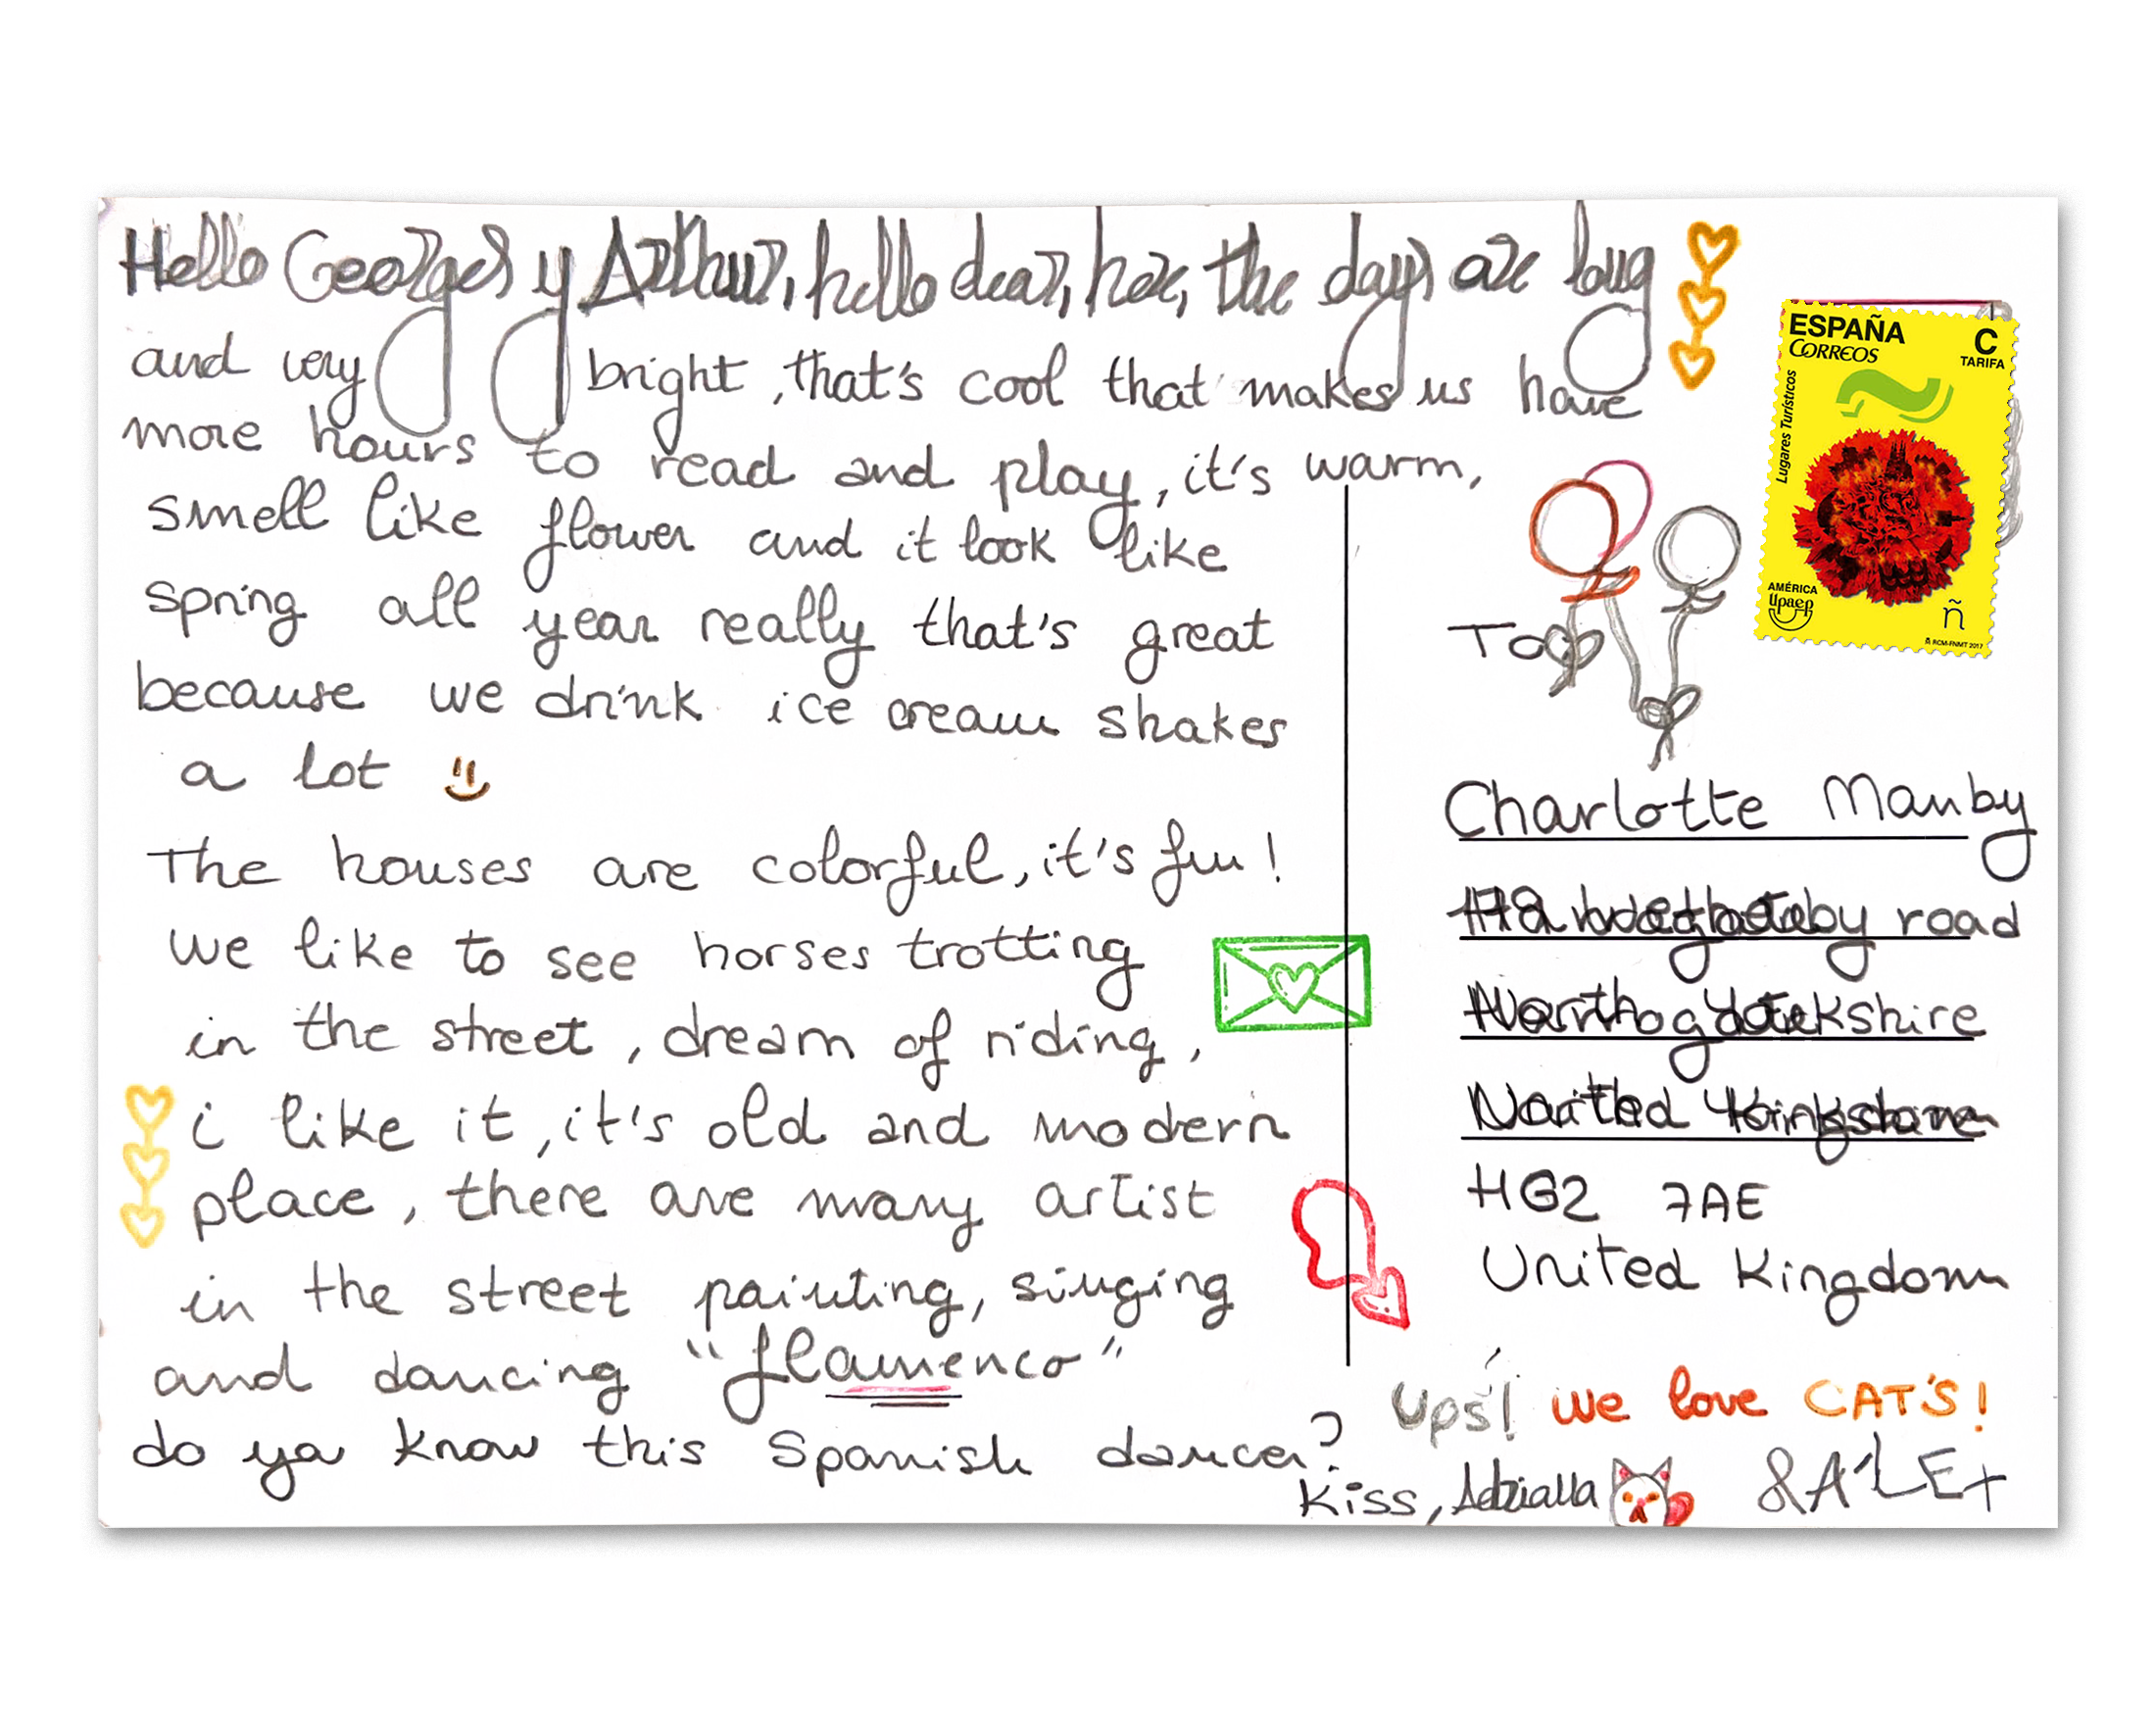 Hello Georges y Arthur, hello dear, here, the days are long
and very bright, that's cool that makes us have
more hours to read and play, it's warm,
smell like flower and it look like
spring all year really that's great
because we drink ice cream shakes
a lot
The houses are colorful, it's fun!
we like to see horses trotting
in the street, dream of riding,
i like it, it's old and modern
place, there are many artist
in the street painting, singing
and dancing "flamenco"
do ya know this Spanish dance?
Kiss,
ESPAÑA
CORREOS
C
TARIFA
Lugares Turísticos
AMÉRICA
upaep
ñ
RCM-FNMT 2017
To
Charlotte Manby
road
HG2 7AE
United Kingdom
Ups! we love CAT'S!